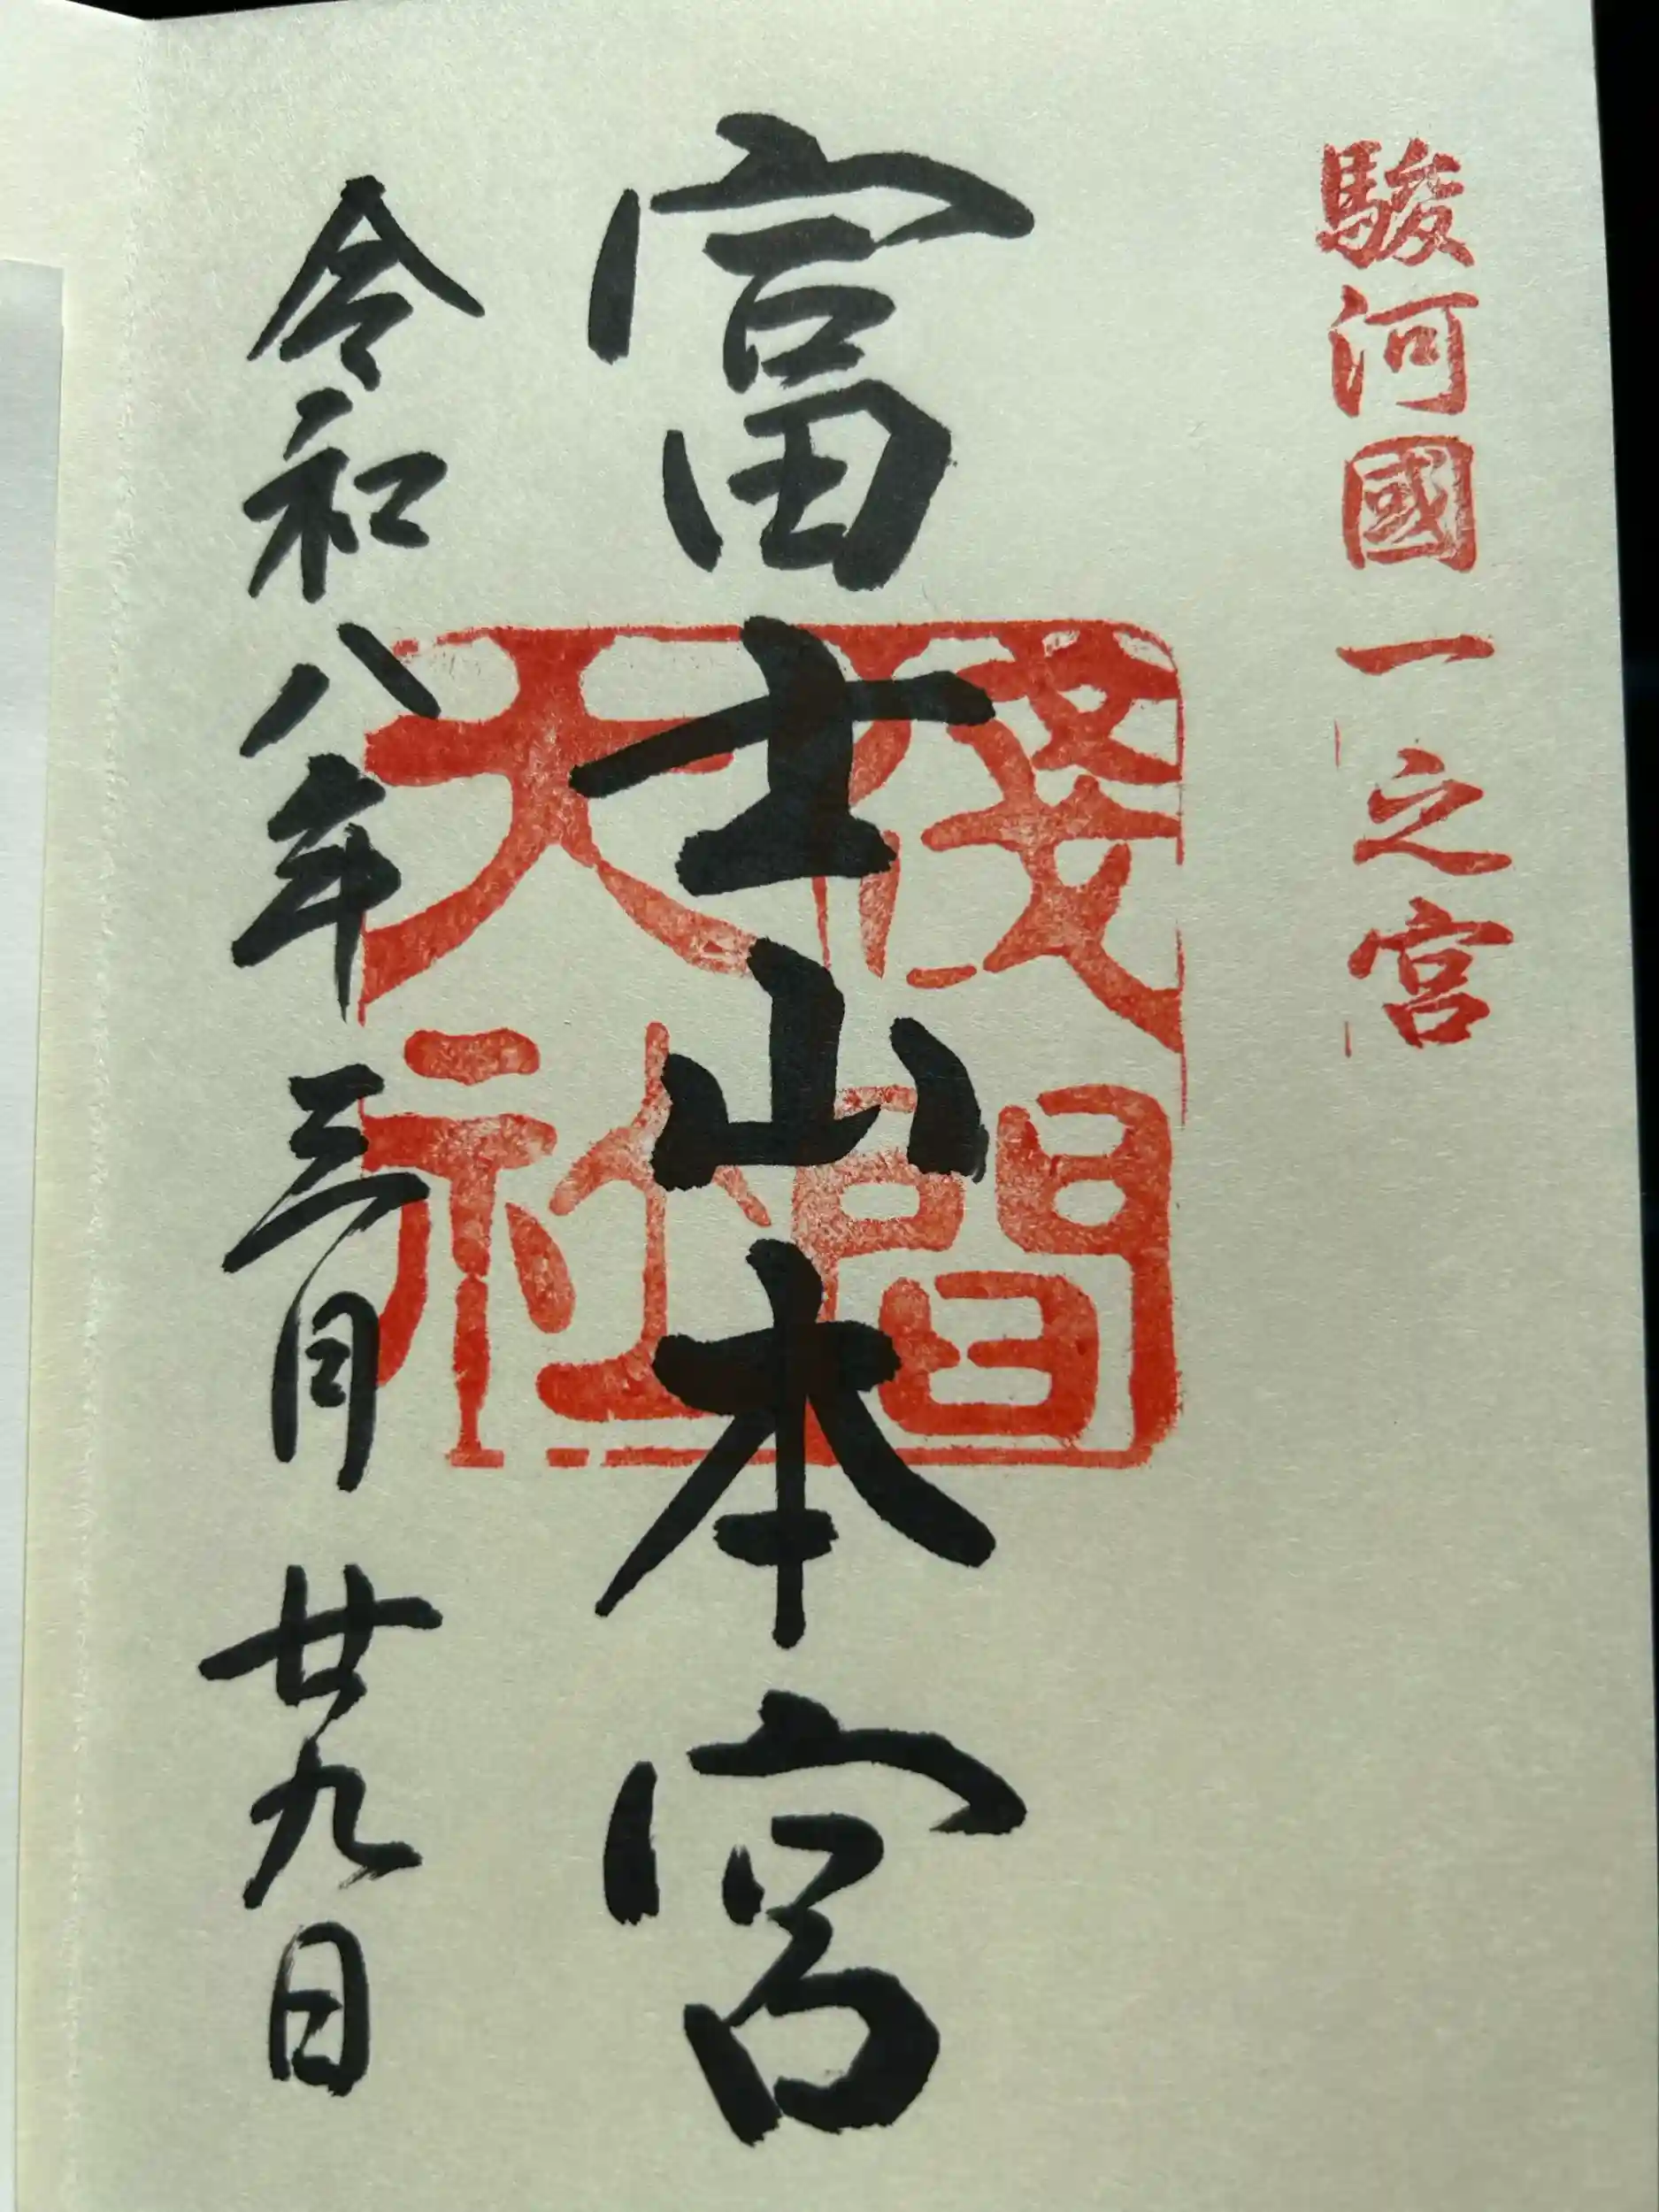 駿河國一之宮
富士山本宮
浅間
大社
令和八年三月廿九日